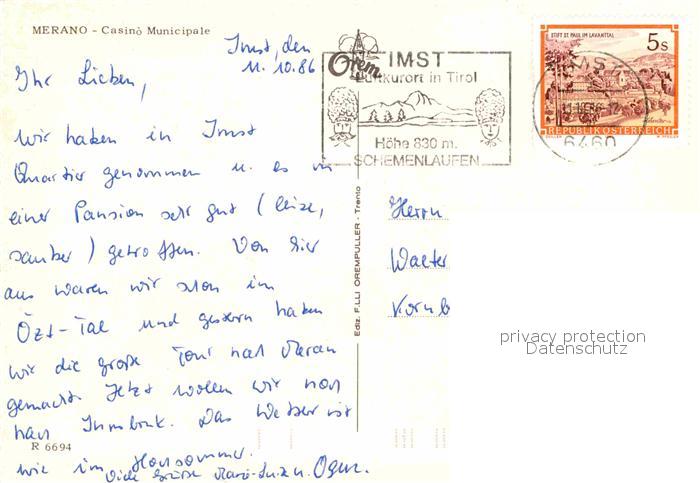 MERANO - Casinò Municipale
Imst, den
11.10.86
Ihr Lieben,
wir haben in Imst
Quartier genommen u. es in
einer Pansion sehr gut (leise,
sauber) getroffen. Von hier
aus waren wir schon im
Özt-Tal und gestern haben
wir die große Tour nach Meran
gemacht. Jetzt wollen wir noch
nach Innsbruck. Das Wetter ist
wie im Hochsommer.
Viele Grüße
R 6694
Orem
Ediz. F.LLI OREMPULLER - Trento
IMST
Luftkurort in Tirol
Höhe 830 m.
SCHEMENLAUFEN
STIFT ST. PAUL IM LAVANTTAL
5s
REPUBLIK ÖSTERREICH
IMST
11.10.86-17
6460
Herrn
Walter
Kornb
privacy protection
Datenschutz